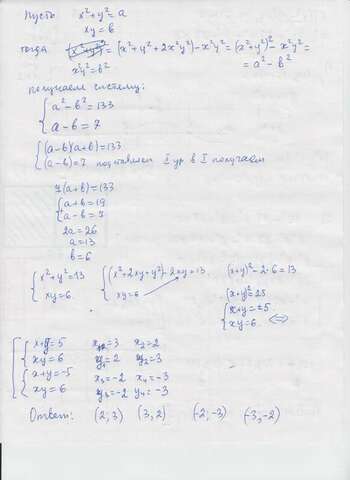 Пусть x²+y²=a
xy=b
тогда = (x²+y²+2x²y²)-x²y²=(x²+y²)²-x²y²=
x²y²=b² = a²-b²
получаем систему:
{ a²-b²=133
a-b=7
{ (a-b)(a+b)=133
(a-b)=7 подставляем II ур в I получаем
7(a+b)=133
{ a+b=19
a-b=7
2a=26
a=13
b=6
{ x²+y²=13 { (x²+2xy+y²)-2xy=13 (x+y)²-2·6=13
xy=6 xy=6 { (x+y)²=25
{ x+y=±5
xy=6 ⇔
{ x+y=5 x₁=3 x₂=2
xy=6 y₁=2 y₂=3
{ x+y=-5 x₃=-2 x₄=-3
xy=6 y₃=-2 y₄=-3
Ответ: (2;3) (3;2) (-2;-3) (-3;-2)